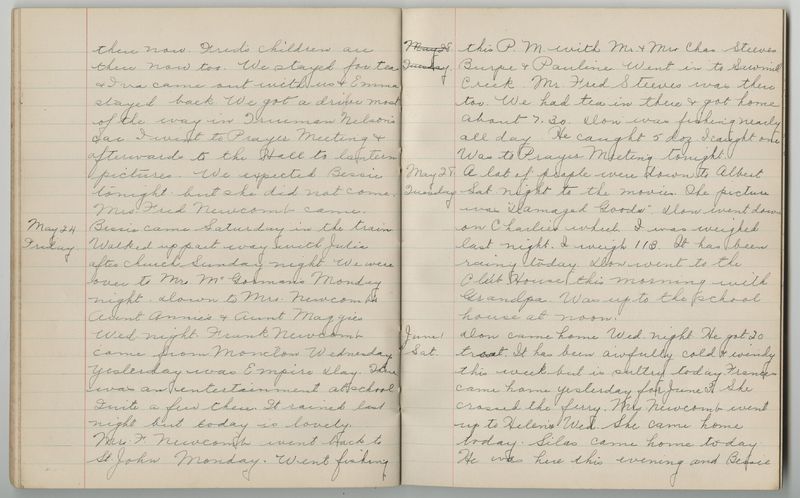 there now. Fred's children are
there now too. We stayed for tea
& Iva came out with us & Emma
stayed back. We got a drive most
of the way in Trueman Nelson's
car. I went to Prayer Meeting &
afterwards to the Hall to lantern
pictures. We expected Bessie
tonight but she did not come.
Mrs Fred Newcomb came.
May 24
Friday
Bessie came Saturday in the train
Walked up part way with Julia
after church Sunday night. We were
over to Mrs McGormans Monday
night. Down to Mrs. Newcombs
Aunt Annie's & Aunt Maggies
Wed night. Frank Newcomb
came from Moncton Wednesday
Yesterday was Empire Day. There
was an entertainment at school
Quite a few there. It rained last
night but today is lovely.
Mrs. F. Newcomb went back to
St John Monday. Went fishing
May 28
Tuesday
this P.M. with Mr & Mrs Chas. Steeves
Burpe & Pauline. Went in to Sawmill
Creek. Mr. Fred Steeves was there
too. We had tea in there & got home
about 7.30. Don was fishing nearly
all day. He caught 5 doz I caught one
Was to Prayer Meeting tonight.
May 28
Tuesday
A lot of people were down to Albert
Sat night to the movies. The picture
was "Damaged Goods". Don went down
on Charlies wheel. I was weighed
last night. I weigh 113. It has been
rainy today. Don went to the
Club House this morning with
Grandpa. Was up to the school
house at noon.
June 1
Sat.
Don came home Wed. night. He got 20
trout. It has been awfully cold & windy
this week but is sultry today. Frances
came home yesterday for June 3. She
crossed the ferry. Mrs Newcomb went
up to Helens Wed. She came home
today. Silas came home today.
He was here this evening and Bessie